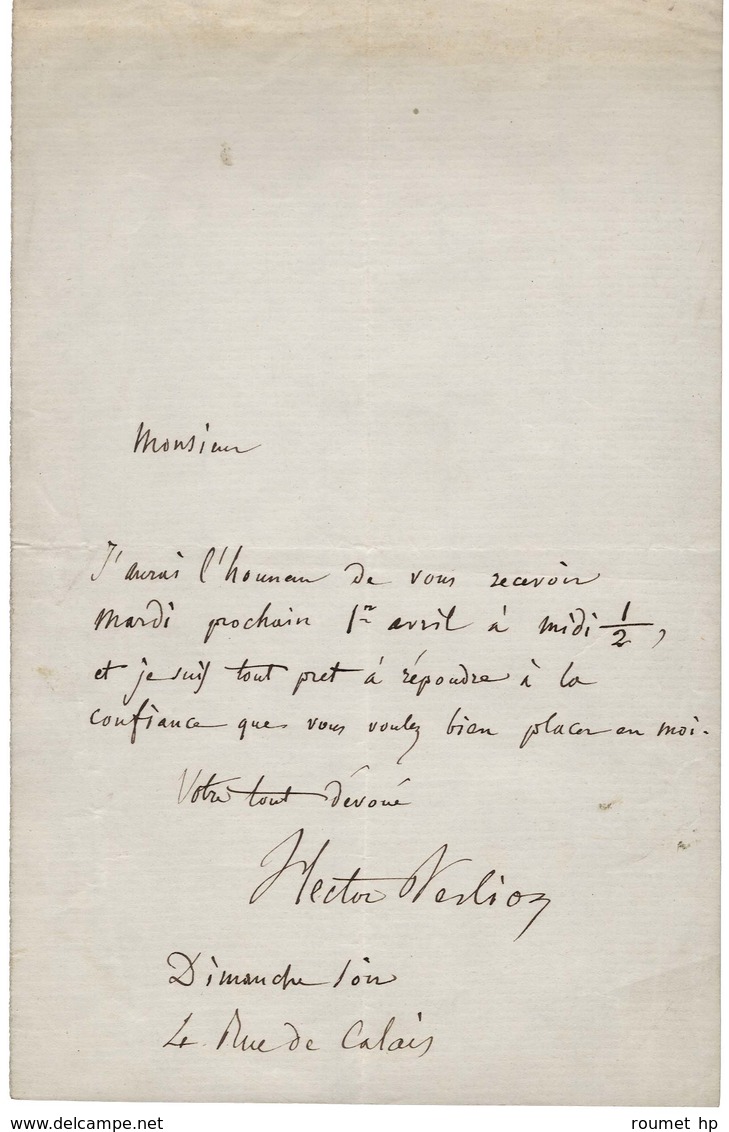 Monsieur
J'aurai l'honneur de vous recevoir
mardi prochain 1er avril à midi 1/2,
et je suis tout pret à répondre à la
confiance que vous voulez bien placer en moi.
Votre tout dévoué
Hector Berlioz
Dimanche soir
4 Rue de Calais
www.delcampe.net
roumet hp